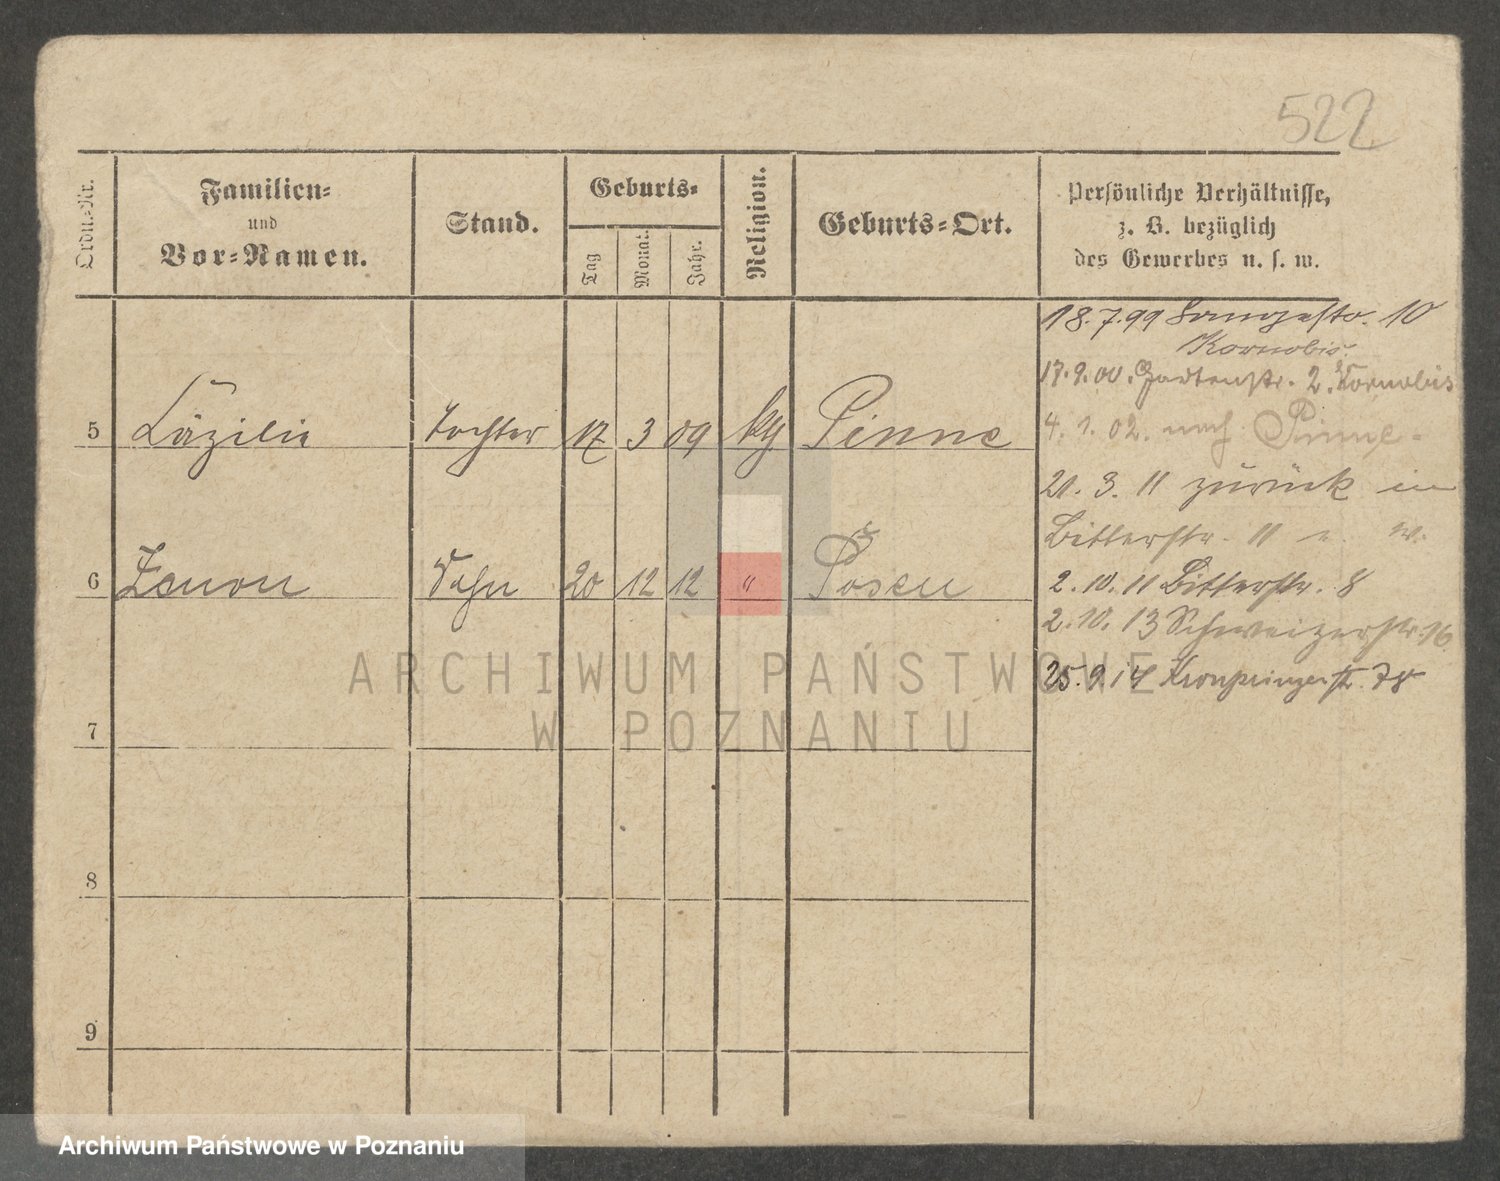 522
Ordn.-Nr.
Familien-
und
Vor-Namen.
Stand.
Geburts-
Tag
Monat.
Jahr.
Religion.
Geburts-Ort.
Persönliche Verhältnisse,
z. B. bezüglich
des Gewerbes u. s. w.
18.7.99 Langestr. 10
Kornobis
17.9.00. Gartenstr. 2. Kornobis
4. 1. 02. nach Pinne.
21. 3. 11 zurück in
Bitterstr. 11 w.
2. 10. 11 Bitterstr. 8
2. 10. 13 Schweizerstr. 16
25. 9. 14 Kronprinzenstr. 78
5 Cäzilie Tochter 17 3 09 kg Pinne
6 Zenon Sohn 20 12 12 " Posen
7
8
9
ARCHIWUM PAŃSTWOWE
W POZNANIU
Archiwum Państwowe w Poznaniu